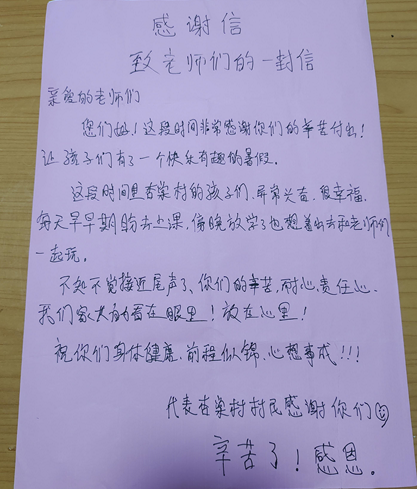 感谢信
致老师们的一封信
亲爱的老师们
您们好！这段时间非常感谢你们的辛苦付出！
让孩子们有了一个快乐有趣的暑假.
这段时间里杏梁村的孩子们,异常兴奋.很幸福.
每天早早期盼去上课,傍晚放学了也想着出去和老师们
一起玩.
不知不觉接近尾声了、你们的辛苦,耐心,责任心.
我们家长都看在眼里！放在心里！
祝你们身体健康.前程似锦.心想事成!!!
代表杏梁村村民感谢你们
辛苦了！感恩.